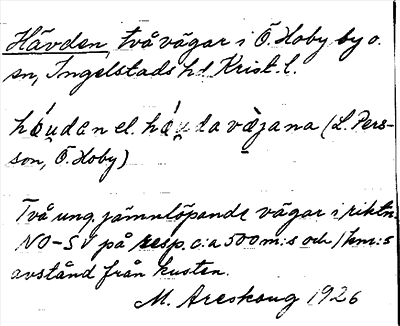 Hävden, två vägar i Ö. Hoby by o.
sn, Ingelstads hd Krist. l.
háu̯dan el. háu̯da vàjana (L. Pers-
son, Ö. Hoby)
Två ung. jämnlöpande vägar i riktn.
NO-SV på resp. c:a 500 m:s och 1 km:s
avstånd från kusten.
M. Areskoug 1926